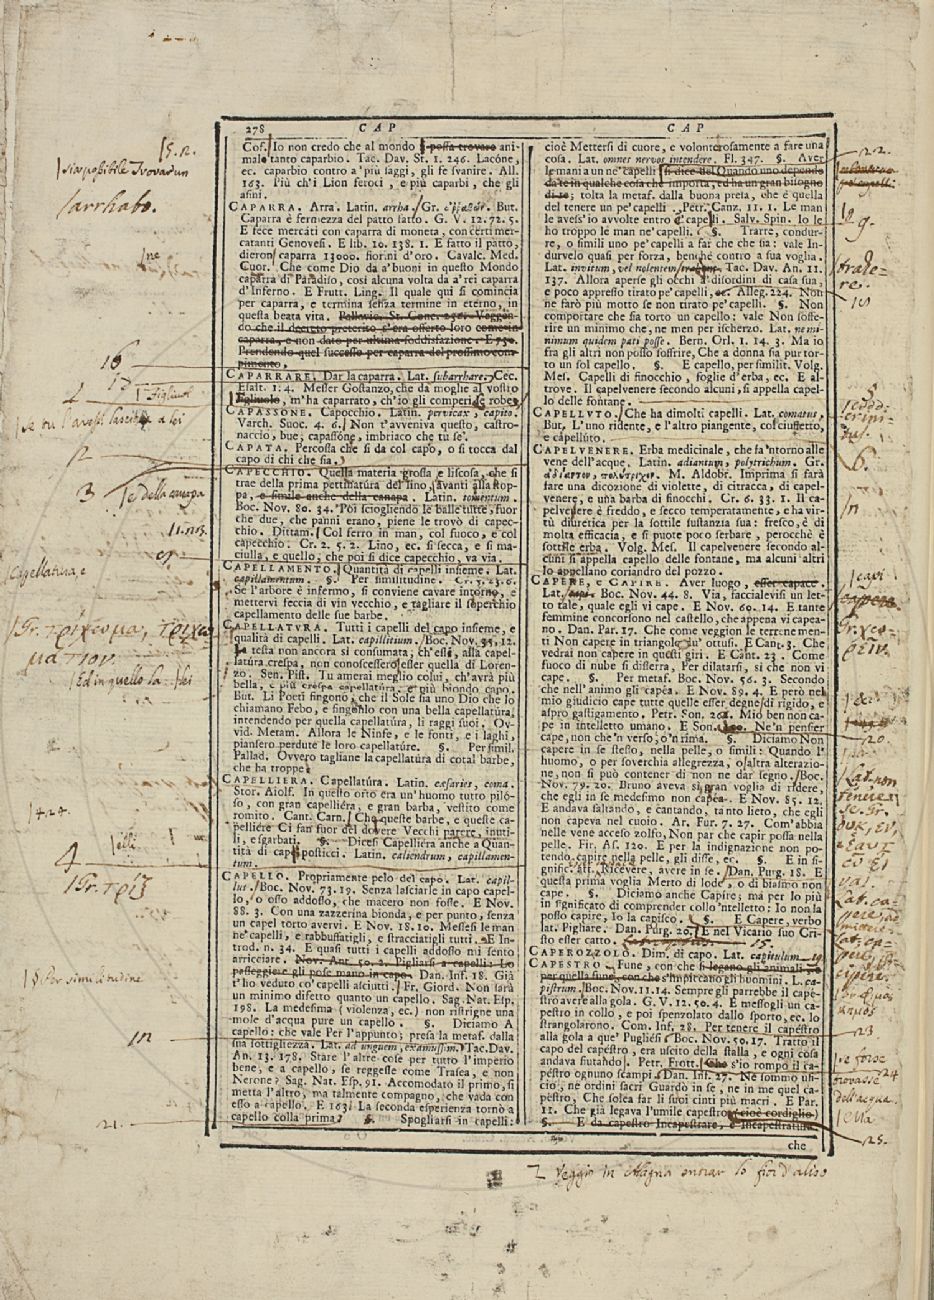 278 CAP CAP
Cos. Io non credo che al mondo si possa trovare ani-
male tanto caparbio. Tac. Dav. St. 1. 246. Lacóne,
ec. caparbio contro a'più saggi, gli fe svanire. All.
163. Più ch'i Lion feroci, e più caparbi, che gli
asini.
CAPARRA. Arra. Latin. arrha. Gr.
Caparra è fermezza del patto fatto. G. V. 12. 72. 5.
E fece mercáti con caparra di moneta, con certi mer-
catanti Genovesi. E lib. 10. 138. 1. E fatto il patto,
dieron caparra 13000. fiorini d'oro. Cavalc. Med.
Cuor. Che come Dio da a'buoni in questo Mondo
caparra di Paradiso, così alcuna volta da a'rei caparra
d'Inferno. E Frutt. Ling. Il quale qui si comincia
per caparra, e termina senza termine in eterno, in
questa beata vita. Pallavic. St. Conc. 250. Veggen-
do che il decreto preterito s'era offerto loro come in
caparra, e non dato per ultima soddisfazione. E 730.
Prendendo quel successo per caparra del prossimo com-
pimento.
CAPARRARE. Dar la caparra. Lat. subarrhare. Cec.
Esalt. 1. 4. Messer Gostanzo, che da moglie al vostro
Figliuolo, m'ha caparrato, ch'io gli comperi le robe.
CAPASSONE. Capocchio. Latin. pervicax, capito.
Varch. Suoc. 4. 6. Non t'avveniva questo, castro-
naccio, bue; capassóne, imbriaco che tu se'.
CAPATA. Percossa che si da col capo, o si tocca dal
capo di chi che sia.
CAPECCHIO. Quella materia grossa e liscosa, che si
trae della prima pettinatura del lino, avanti alla stop-
pa, e simile anche della canapa. Latin. tomentum.
Boc. Nov. 80. 34. Poi sciogliendo le balle tutte, fuor
che due, che panni erano, piene le trovò di capec-
chio. Dittam. Col ferro in man, col fuoco, e col
capecchio. Cr. 2. 5. 2. Lino, ec. si secca, e si ma-
ciulla, e quello, che poi si dice capecchio, va via.
CAPELLAMENTO. Quantità di capelli insieme. Lat.
capillamentum. §. Per similitudine. Cr. 5. 23. 6.
Se l'arbore è infermo, si conviene cavare intorno, e
mettervi feccia di vin vecchio, e tagliare il soperchio
capellamento delle sue barbe.
CAPELLATURA. Tutti i capelli del capo insieme, e
qualità di capelli. Lat. capillitium. Boc. Nov. 35. 12.
La testa non ancora si consumata, ch'essi, alla capel-
latúra crespa, non conoscessero esser quella di Loren-
zo. Sen. Pist. Tu amerai meglio colui, ch'avrà più
bella, e più crespa capellatúra, e più biondo capo.
But. Li Poeti fingono, che il Sole sia uno Dio che lo
chiamano Febo, e fingonlo con una bella capellatúra,
intendendo per quella capellatúra, li raggi suoi. Ov-
vid. Metam. Allora le Ninfe, e le fonti, e i laghi,
piansero perdute le loro capellatúre. §. Per simil.
Pallad. Ovvero tagliane la capellatura di cotal barbe,
che ha troppe.
CAPELLIERA. Capellatúra. Latin. cæsaries, coma.
Stor. Aiolf. In questo orto era un'huomo tutto piló-
so, con gran capelliéra, e gran barba, vestito come
romito. Cant. Carn. Che queste barbe, e queste ca-
pelliére Ci fan fuor del dovere Vecchi parere, inuti-
li, e sgarbati. §. Dicesi Capelliera anche a Quan-
tità di capelli posticci. Latin. caliendrum, capillamen-
tum.
CAPELLO. Propriamente pelo del capo. Lat. capil-
lus. Boc. Nov. 73. 19. Senza lasciarle in capo capel-
lo, o osso addosso, che macero non fosse. E Nov.
88. 3. Con una zazzerina bionda, e per punto, senza
un capel torto avervi. E Nov. 18. 10. Messesi le man
ne'capelli, e rabbuffatigli, e stracciatigli tutti. E In-
trod. n. 34. E quasi tutti i capelli addosso mi sento
arricciare. Nov. Ant. 50. 2. Pigliarsi a capelli: Lo
passeggiere gli pose mano in capo. Dan. Inf. 18. Già
t'ho veduto co'capelli asciutti. Fr. Giord. Non sarà
un minimo disetto quanto un capello. Sag. Nat. Esp.
198. La medesima (violenza, ec.) non ristrigne una
mole d'acqua pure un capello. §. Diciamo A
capello: che vale Per l'appunto; presa la metaf. dalla
sua sottigliezza. Lat. ad unguem, examussim. Tac. Dav.
An. 13. 178. Stare l'altre cose per tutto l'imperio
bene; e a capello, se reggesse come Trasea, e non
Nerone? Sag. Nat. Esp. 91. Accomodato il primo, si
metta l'altro, ma talmente compagno, che vada con
esso a capello. E 163. La seconda esperienza tornò a
capello colla prima. §. Spogliarsi in capelli:
cioè Mettersi di cuore, e volonterosamente a fare una
cosa. Lat. omnes nervos intendere. Fl. 347. §. Aver
le mani a un ne' capelli si dice del Quando uno dependa
da te in qualche cosa che importa, ed ha un gran bisogno
di te; tolta la metaf. dalla buona preta, che è quella
del tenere un pe'capelli. Petr. Canz. 11. 1. Le man
le avess'io avvolte entro e'capelli. Salv. Spin. Io le
ho troppo le man ne'capelli. §. Trarre, condur-
re, o simili uno pe'capelli a far che che sia: vale In-
durvelo quasi per forza, benchè contro a sua voglia.
Lat. invitum, vel nolentem Tac. Dav. An. 11.
137. Allora aperse gli occhi a'disordini di casa sua,
e poco appresso tirato pe'capelli, ec. Alleg. 224. Non
ne farò più motto se non tirato pe'capelli. §. Non
comportare che sia torto un capello: vale Non soffe-
rire un minimo che, ne men per ischerzo. Lat. ne mi-
nimum quidem pati posse. Bern. Orl. 1. 14. 3. Ma io
fra gli altri non posso soffrire, Che a donna sia pur tor-
to un sol capello. §. E capello, per similit. Volg.
Mes. Capelli di finocchio, foglie d'erba, ec. E al-
trove. Il capelvenere secondo alcuni, si appella capel-
lo delle fontane.
CAPELLUTO. Che ha dimolti capelli. Lat. comatus.
But. L'uno ridente, e l'altro piangente, col ciuffetto,
e capelluto.
CAPELVENERE. Erba medicinale, che fa 'ntorno alle
vene dell'acque. Latin. adiantum, polytrichum. Gr.
M. Aldobr. Imprima si farà
fare una dicozione di violette, di citracca, di capel-
venere, e una barba di finocchi. Cr. 6. 33. 1. Il ca-
pelvenere è freddo, e secco temperatamente, e ha vir-
tù diuretica per la sottile sustanzia sua: fresco, è di
molta efficacia, e si puote poco serbare, perocchè è
sottile erba. Volg. Mes. Il capelvenere secondo al-
cuni si appella capello delle fontane, ma alcuni altri
lo appellano coriandro del pozzo.
CAPERE, e CAPIRE. Aver luogo, esser capace.
Lat. Boc. Nov. 44. 8. Via, facciálevisi un let-
to tale, quale egli vi cape. E Nov. 60. 14. E tante
femmine concorsono nel castello, che appena vi capea-
no. Dan. Par. 17. Che come veggion le terrene men-
ti Non capere in triangolo du' ottusi. E Cant. 3. Che
vedrai non capere in questi giri. E Cant. 23. Come
fuoco di nube si disserra, Per dilatarsi, sì che non vi
cape. §. Per metaf. Boc. Nov. 56. 3. Secondo
che nell'animo gli capéa. E Nov. 89. 4. E però nel
mio giudicio cape tutte quelle esser degne di rigido, e
aspro gastigamento. Petr. Son. Mió ben non ca-
pe in intelletto umano. E Son. Ne'n pensier
cape, non che'n verso, o'n rima. §. Diciamo Non
capere in se stesso, nella pelle, o simili: Quando l'
huomo, o per soverchia allegrezza, o altra alterazio-
ne, non si può contener di non ne dar segno. Boc.
Nov. 79. 20. Bruno aveva sì gran voglia di ridere,
che egli in se medesimo non capéa. E Nov. 85. 12.
E andava saltando, e cantando, tanto lieto, che egli
non capeva nel cuoio. Ar. Fur. 7. 27. Com'abbia
nelle vene acceso zolfo, Non par che capir possa nella
pelle. Fir. As. 120. E per la indignazione non po-
tendo capire nella pelle, gli disse, ec. §. E in si-
gnific. att. Ricévere, avere in se. Dan. Purg. 18. E
questa prima voglia Merto di lode, o di biasmo non
cape. §. Diciamo anche Capíre; ma per lo più
in significato di comprender collo 'ntelletto: Io non la
posso capire, Io la capisco. §. E Capere, verbo
lat. Pigliare. Dan. Purg. 20. E nel Vicario suo Cri-
sto esser catto. 15.
CAPEROZZOLO. Dim. di capo. Lat. capitulum. 19.
CAPESTRO. Fune, con che si legano gli animali, e
per quella fune, con che s'impiccano gli huomini. L. ca-
pistrum. Boc. Nov. 11. 14. Sempre gli parrebbe il capé-
stro avere alla gola. G. V. 12. 50. 4. E messogli un ca-
pestro in collo, e poi spenzolato dallo sporto, ec. lo
strangolarono. Com. Inf. 28. Per tenere il capéstro
alla gola a que' Pugliesi. Boc. Nov. 50. 17. Tratto il
capo del capéstro, era uscito della stalla, e ogni cosa
andava fiutando. Petr. Frott. Che s'io rompo il ca-
péstro ognuno scampi. Dan. Inf. 27. Ne sommo ufi-
cio, ne ordini sacri Guardò in se, ne in me quel ca-
péstro, Che solea far li suoi cinti più macri. E Par.
11. Che già legava l'umile capestro (cioè cordiglio)
§. E da capestro Incapestrare, e Incapestratura.
che
5. n.
sia possibile trovar un
arrhabo.
ne
16
17
Figliuol
12
3
e della canapa
11.
Capellatura e
Gr.
Ed in quello la lei
4
Gr.
Per similitudine
in
21.
22.
9.
trahe-
re.
10
6.
n
capi
20.
Lat. non
tenere
se. Gr.
Lat. ca-
pere,
23
24
se forse
trovasse
dell'acqua
ella
25.
Veggio in Alagna entrar lo fior d'aliso